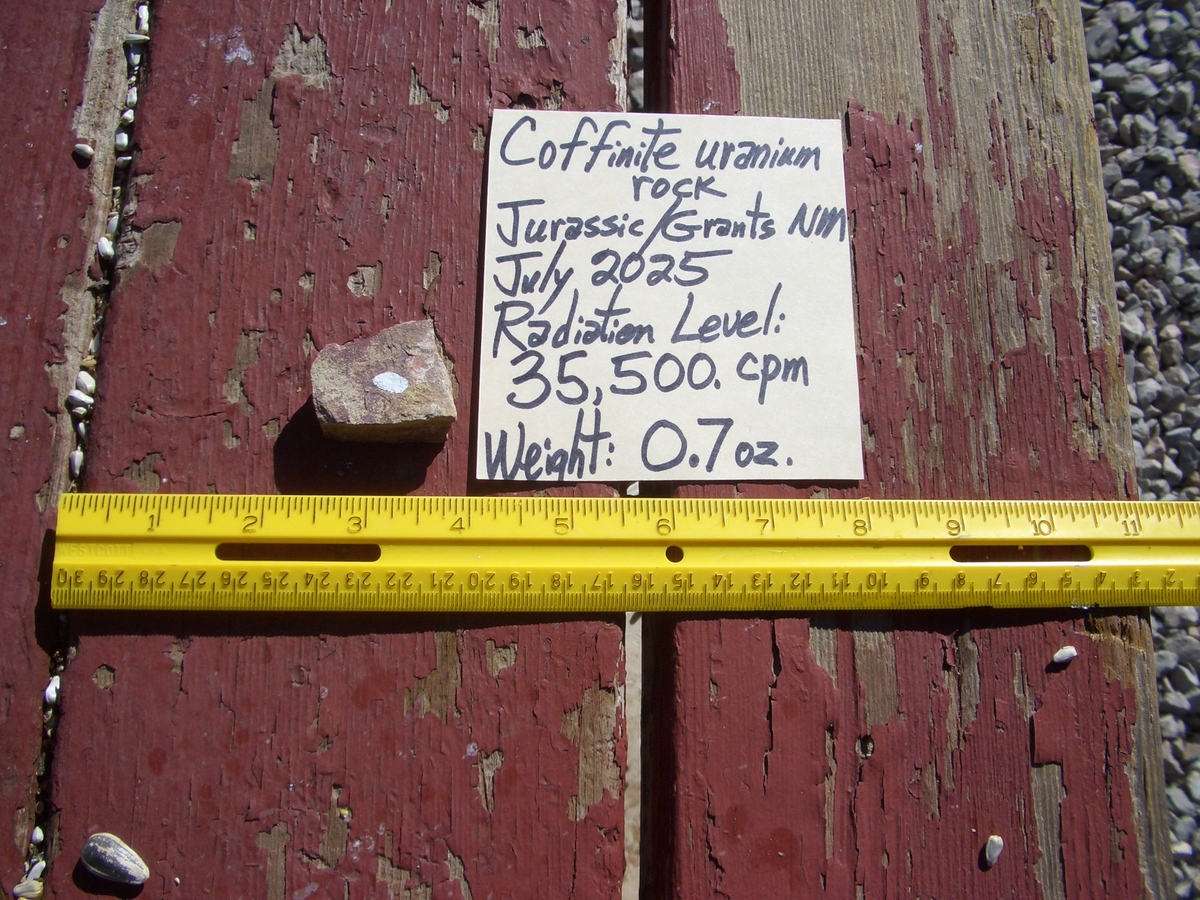 Coffinite uranium
rock
Jurassic/Grants NM
July 2025
Radiation Level:
35,500. cpm
Weight: 0.7 oz.
1 2 3 4 5 6 7 8 9 10 11
WESTCOTT
30 29 28 27 26 25 24 23 22 21 20 19 18 17 16 15 14 13 12 11 10 9 8 7 6 5 4 3 2